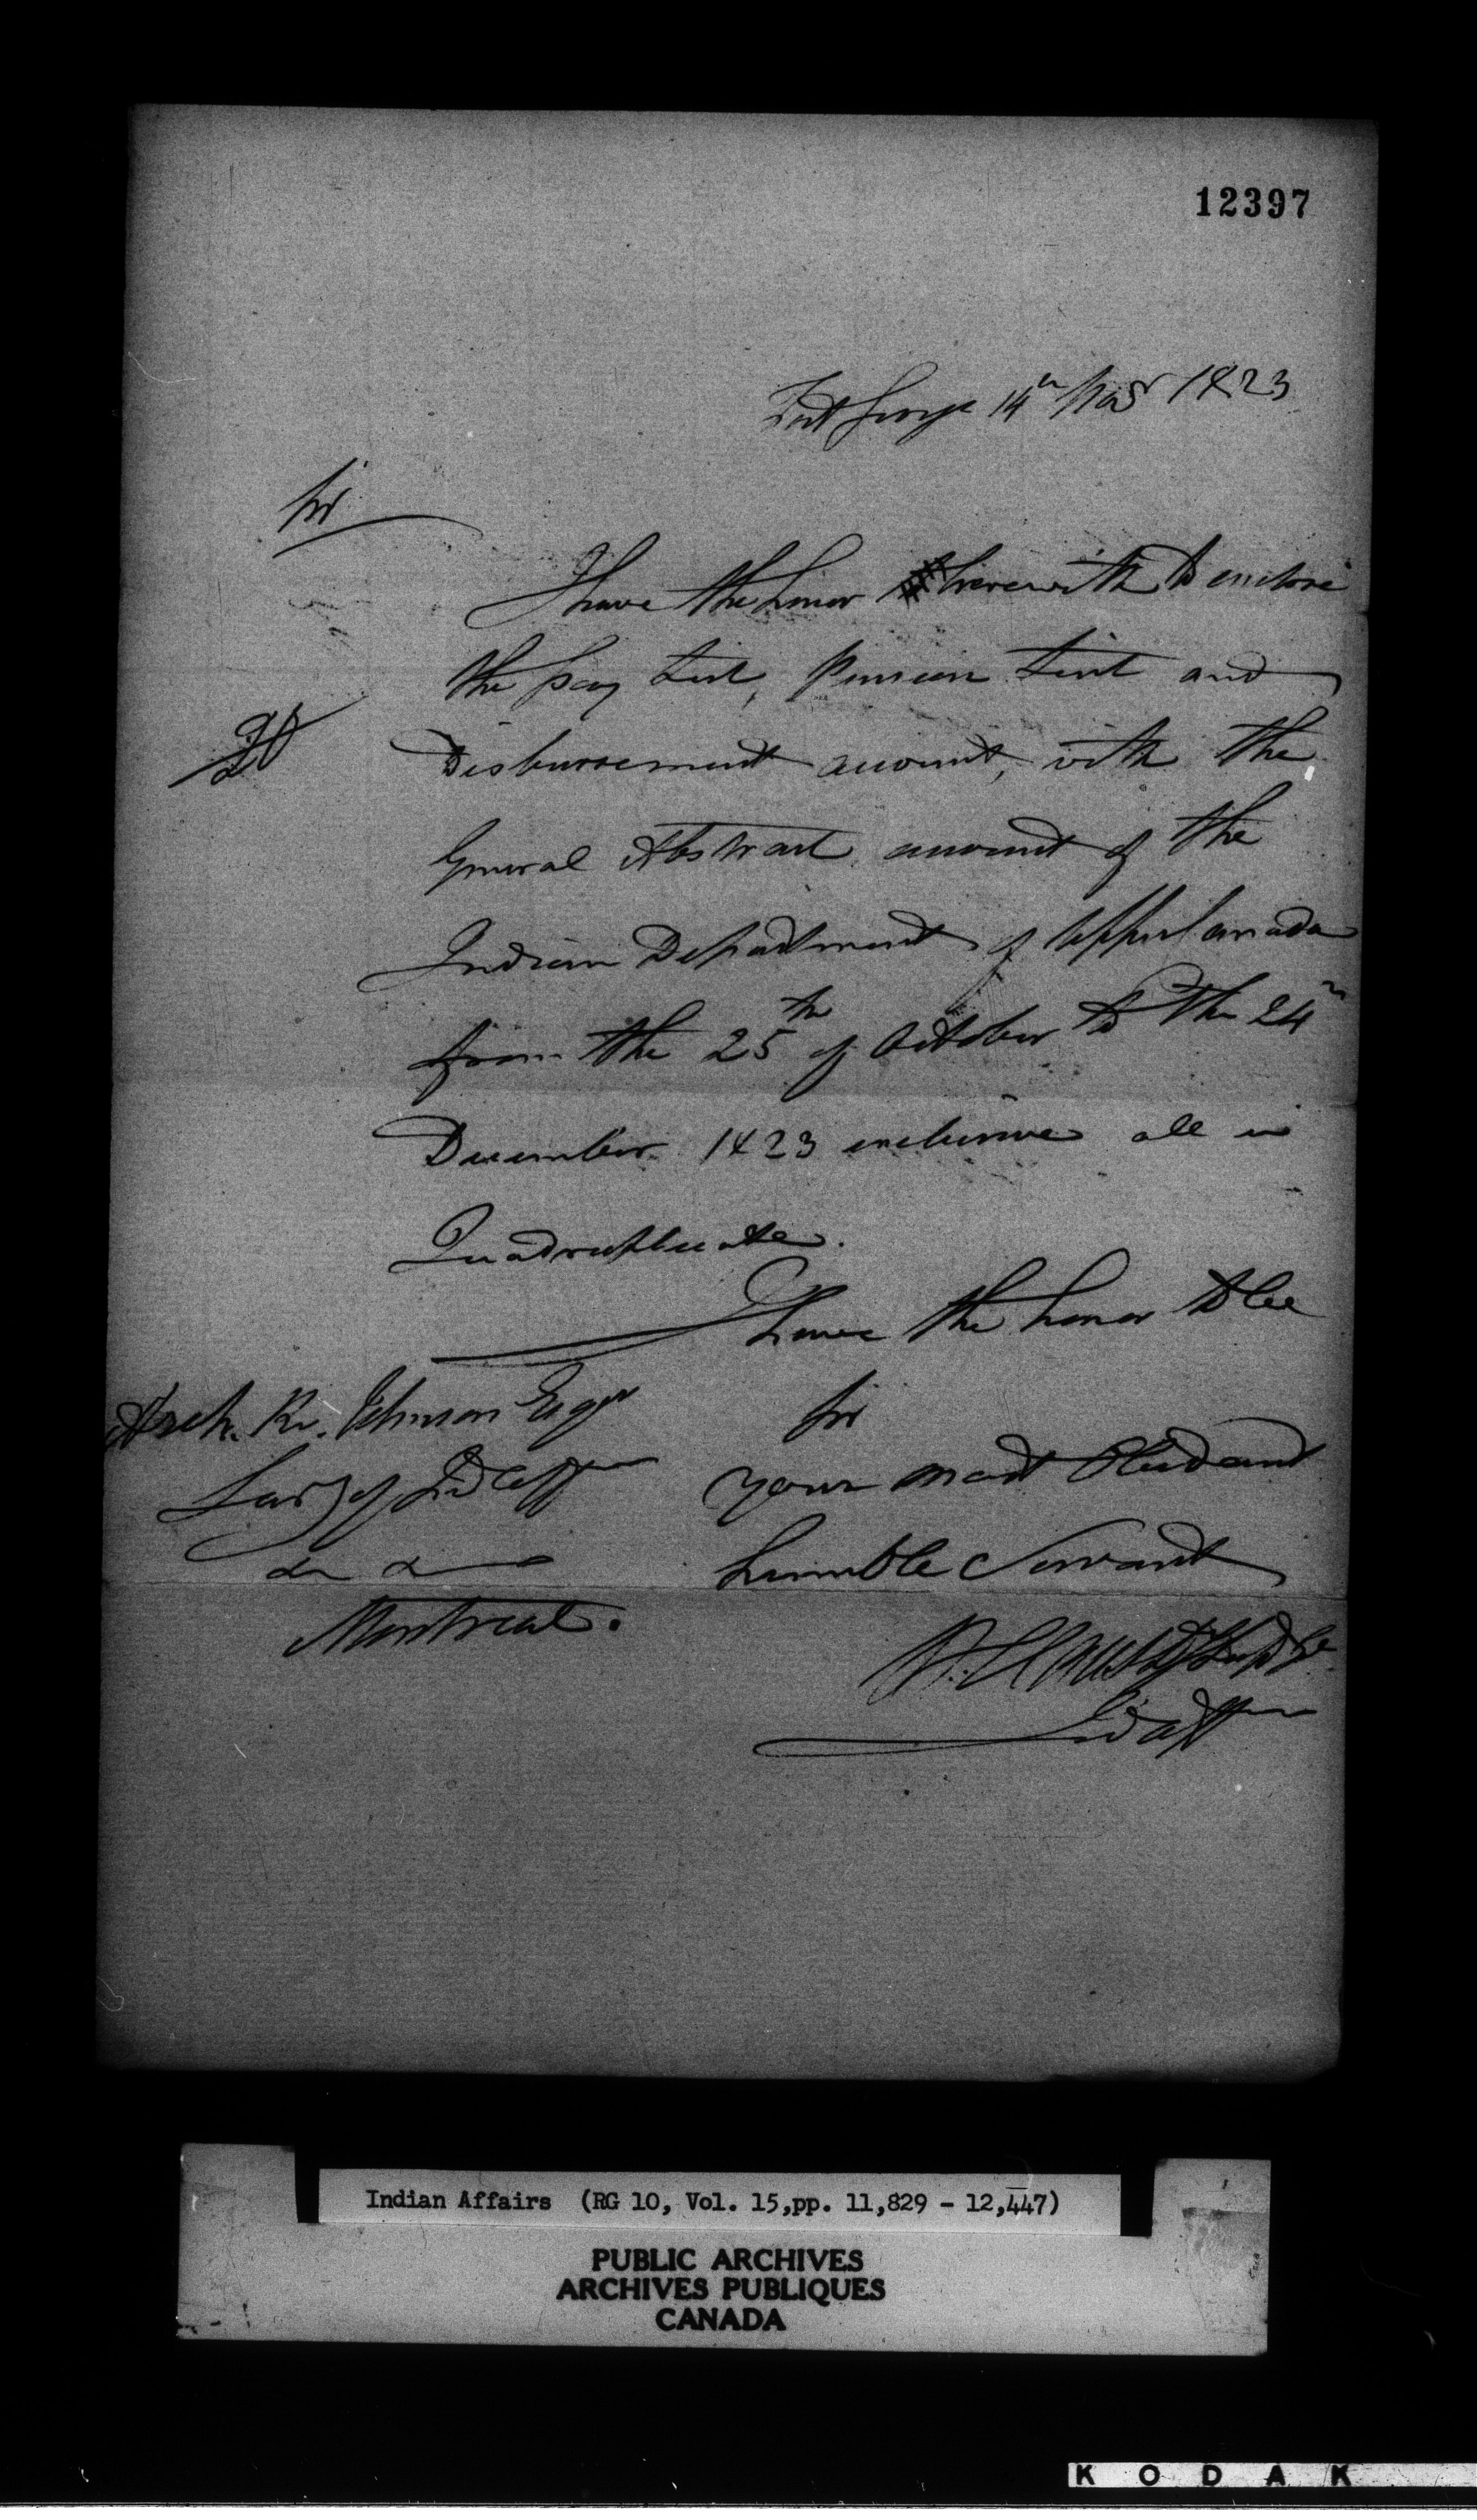 12397
Fort George 14th Novr 1823
Sir
I have the honor herewith to enclose
the Pay List, Pension List and
Disbursement account, with the
General Abstract account of the
Indian Department of Upper Canada
from the 25th of October to the 24th
December 1823 inclusive all in
Quadruplicate.
I have the honor to be
Sir
your most Obedient
humble Servant
Johnson Esqr
Montreal.
Indian Affairs (RG 10, Vol. 15,pp. 11,829 - 12,447)
PUBLIC ARCHIVES
ARCHIVES PUBLIQUES
CANADA
KODAK